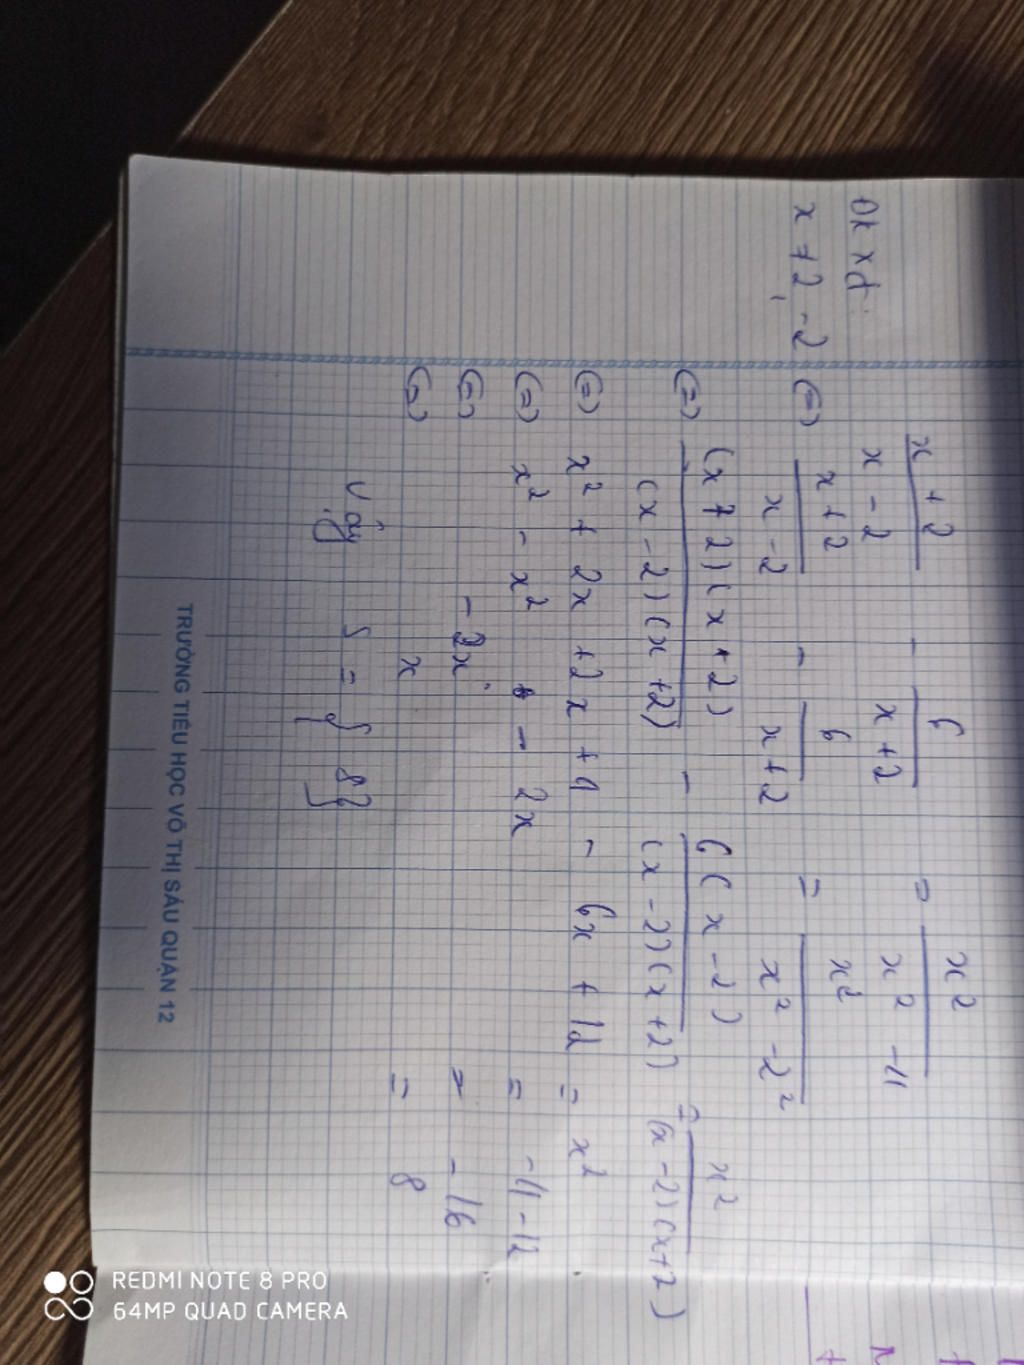 x + 2 / x - 2 - 6 / x + 2 = x² / x² - 4
ĐKXĐ:
x ≠ 2, -2 (=) x + 2 / x - 2 - 6 / x + 2 = x² / x² - 2²
(=) (x + 2)(x + 2) / (x - 2)(x + 2) - 6(x - 2) / (x - 2)(x + 2) = x² / (x - 2)(x + 2)
(=) x² + 2x + 2x + 4 - 6x + 12 = x²
(=) x² - x² - 2x = -4 - 12
(=) -2x = -16
(=) x = 8
Vậy S = { 8 }
TRƯỜNG TIỂU HỌC VÕ THỊ SÁU QUẬN 12
REDMI NOTE 8 PRO
64MP QUAD CAMERA